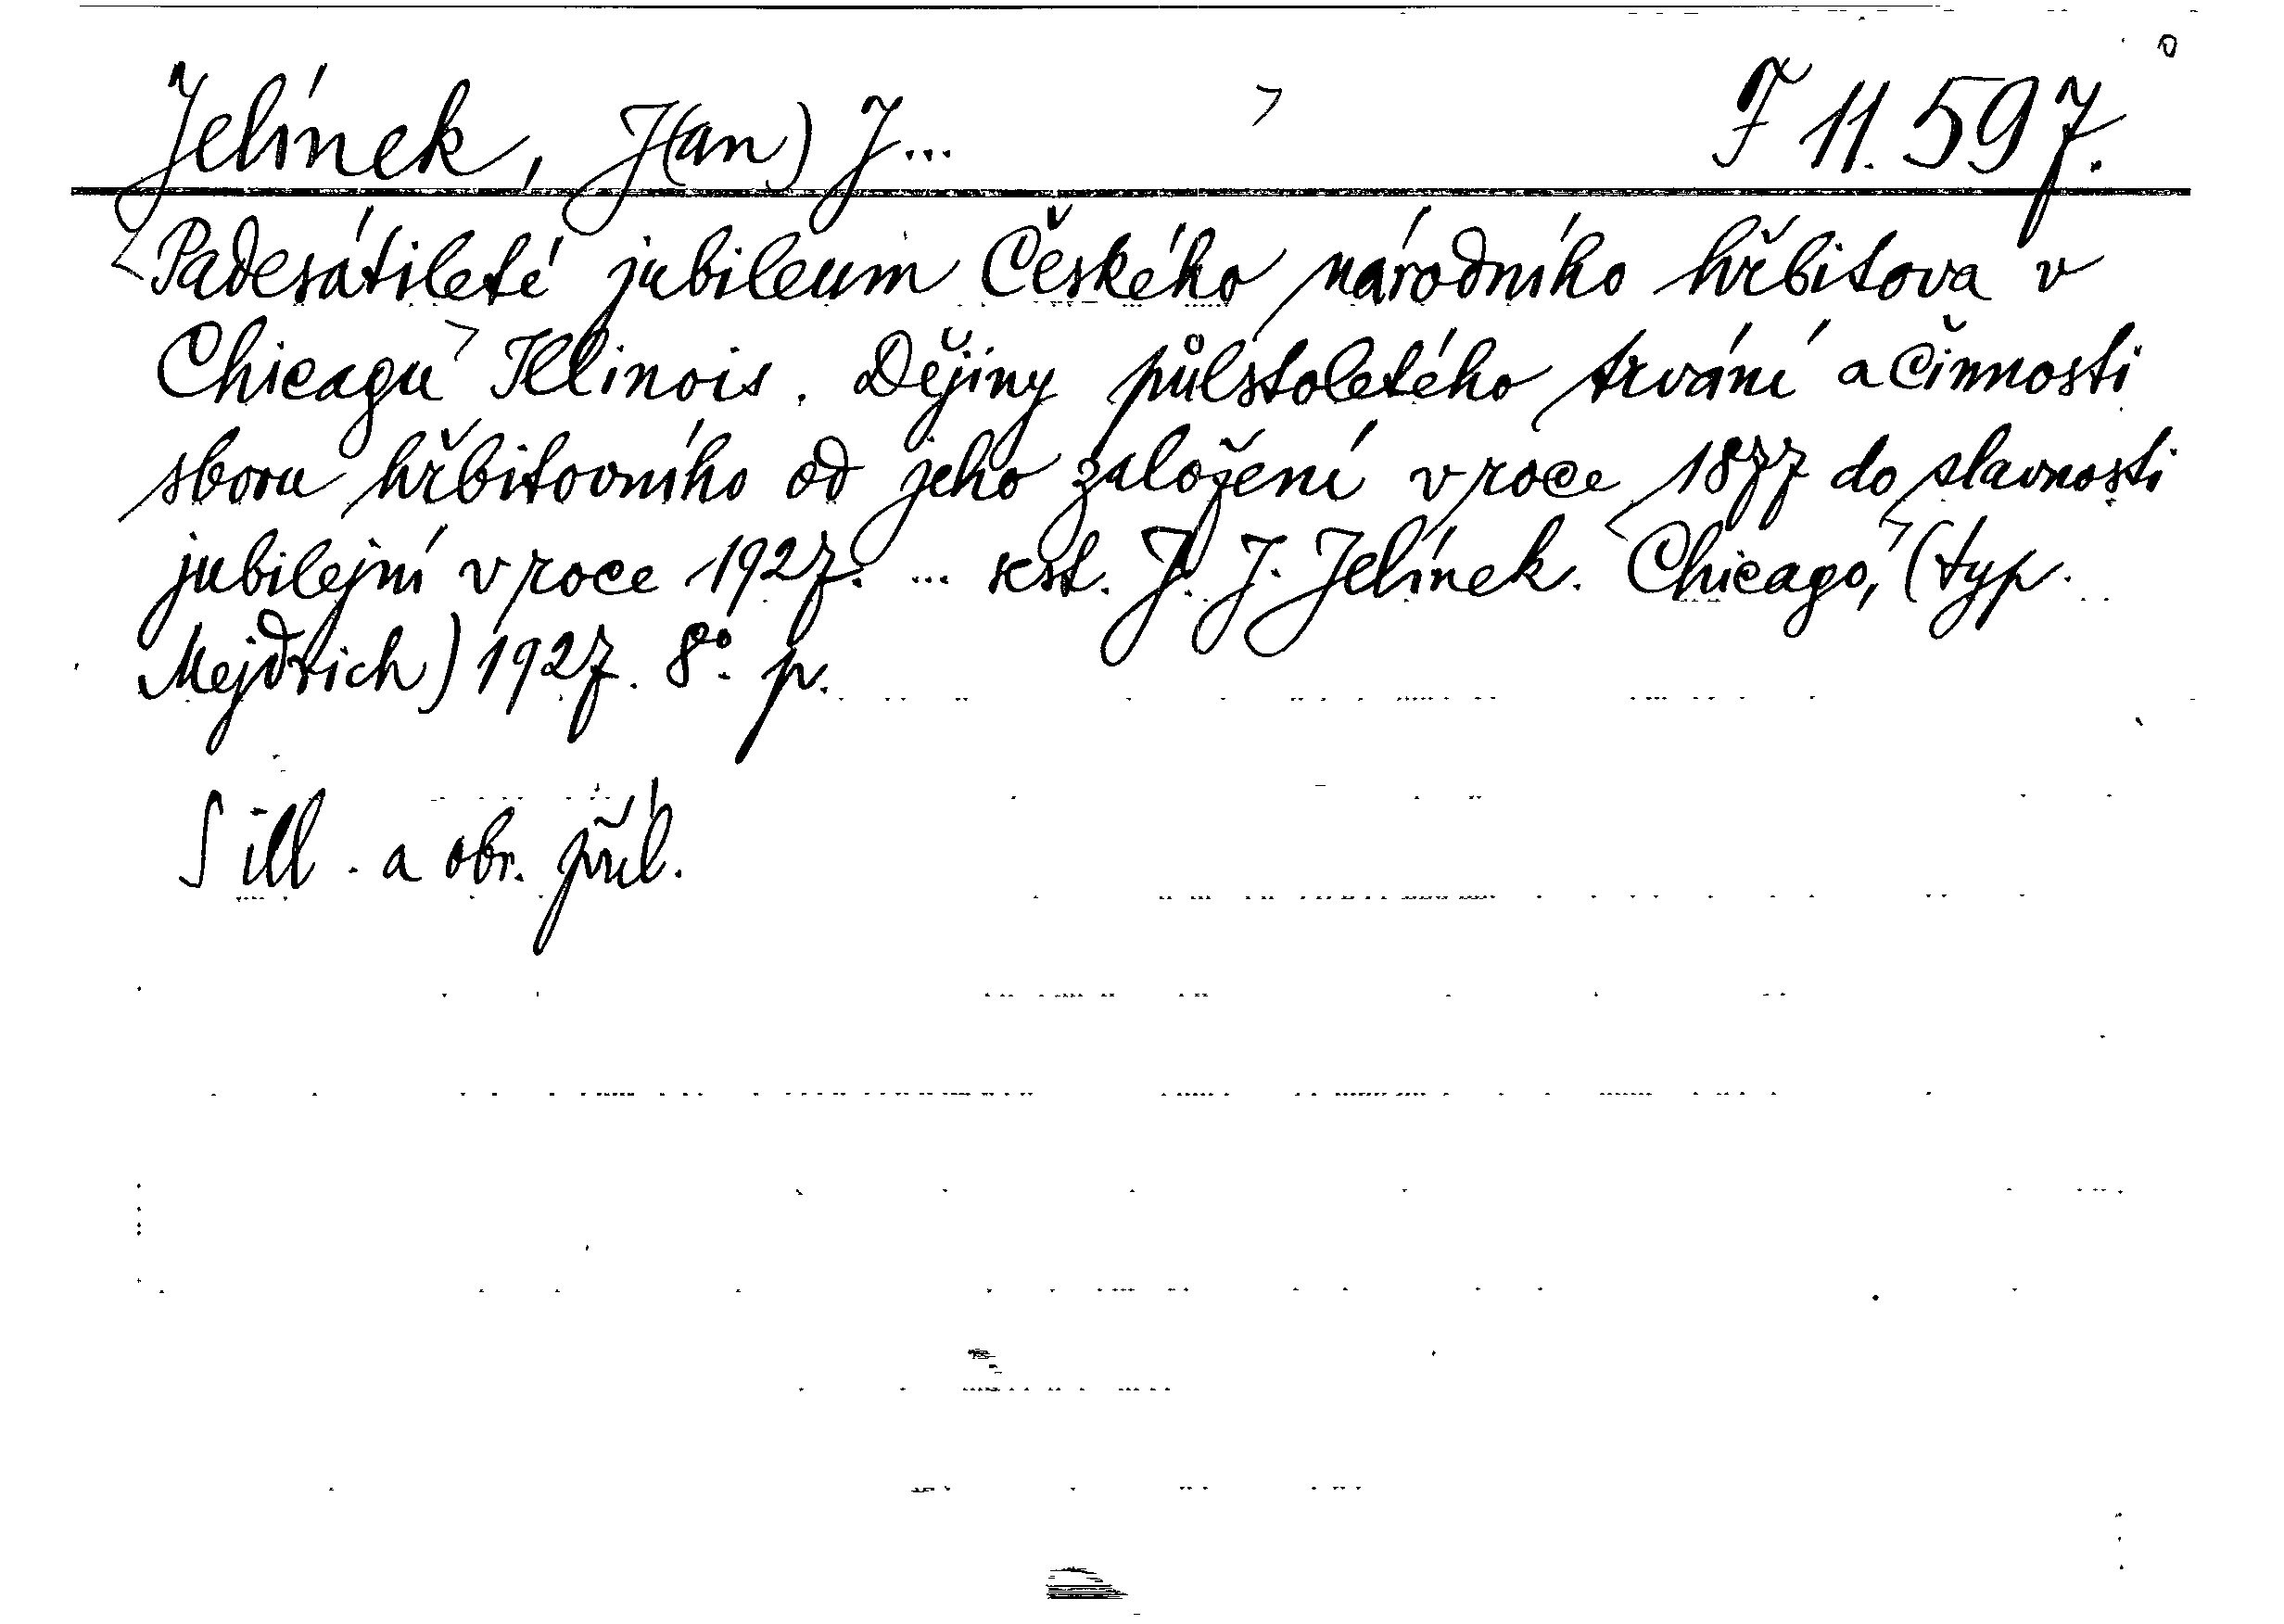 Jelínek, J(an) J... F 11.597.
Padesátileté jubileum Českého národního hřbitova v
Chicagu Illinois. Dějiny půlstoletého trvání a činnosti
sboru hřbitovního od jeho založení v roce 1877 do slavnosti
jubilejní v roce 1927. ... sest. J. J. Jelínek. Chicago, (typ.
Mejdrich) 1927. 8°. p.
S ill. a obr. příl.